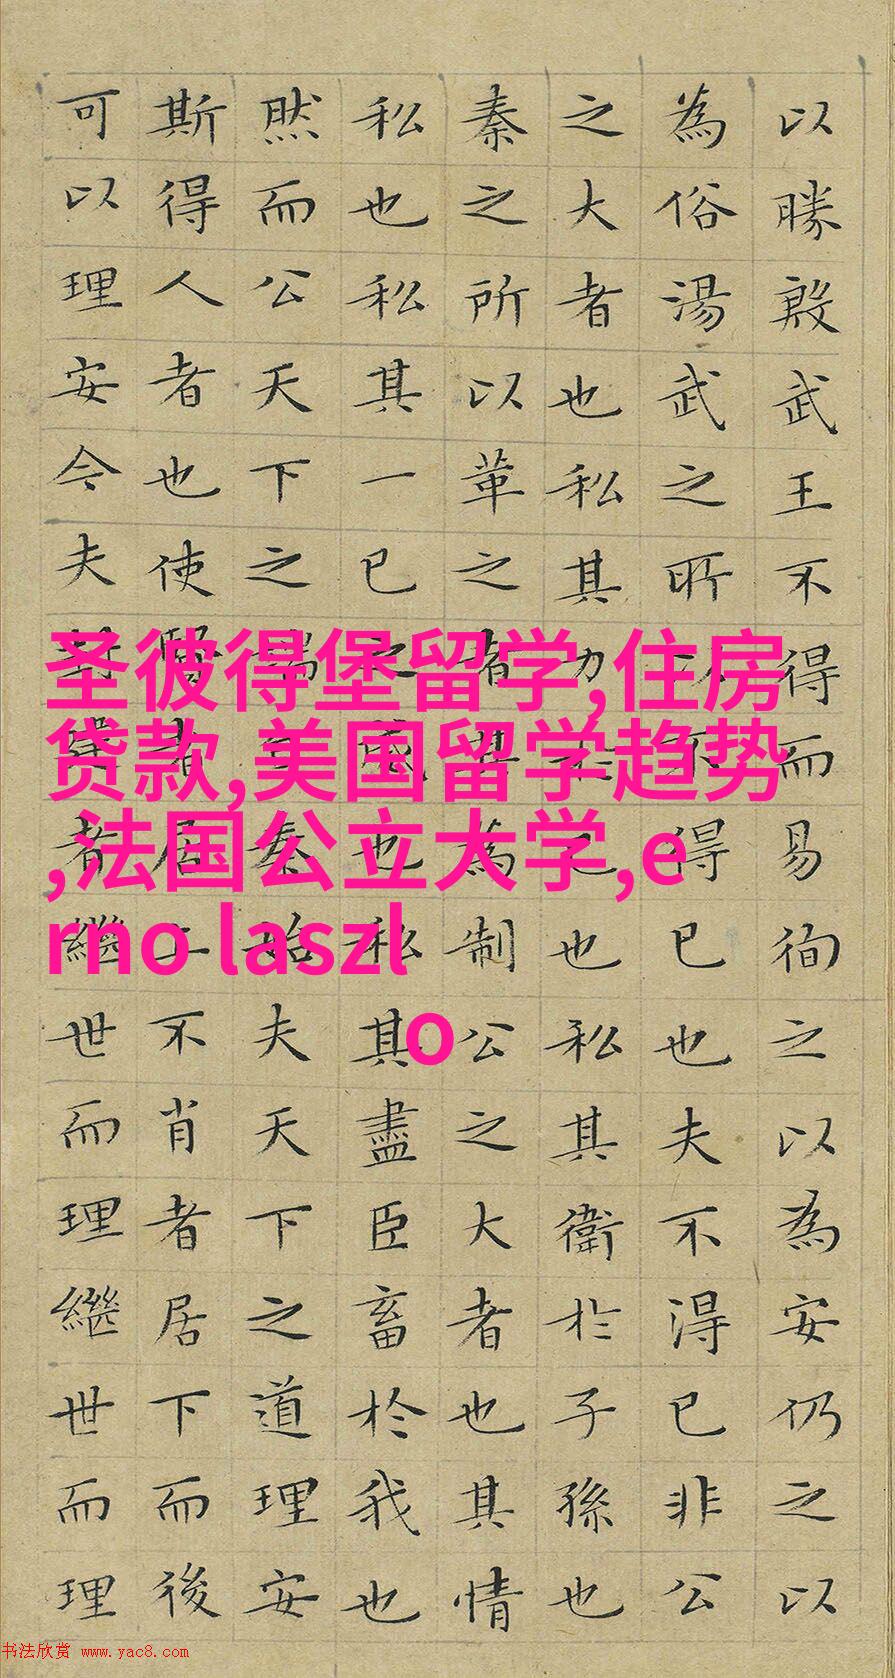 以勝殷武王不得而易徇之以為安仍之以
為俗湯武之所以不得已也夫不得已非公
之大者也私其力於己也私其衛於子孫也
秦之所以革之者其為制公之大者也其情
私也私其一己之威也私其盡臣畜於我也
然而公天下之端自秦始夫天下之道理安
斯得人者也使賢者居上不肖者居下而後
可以理安今夫封建者繼世而理繼世而理
圣彼得堡留学,住房
贷款,美国留学趋势
,法国公立大学,e
rno laszl
o
书法欣赏 www.yac8.com